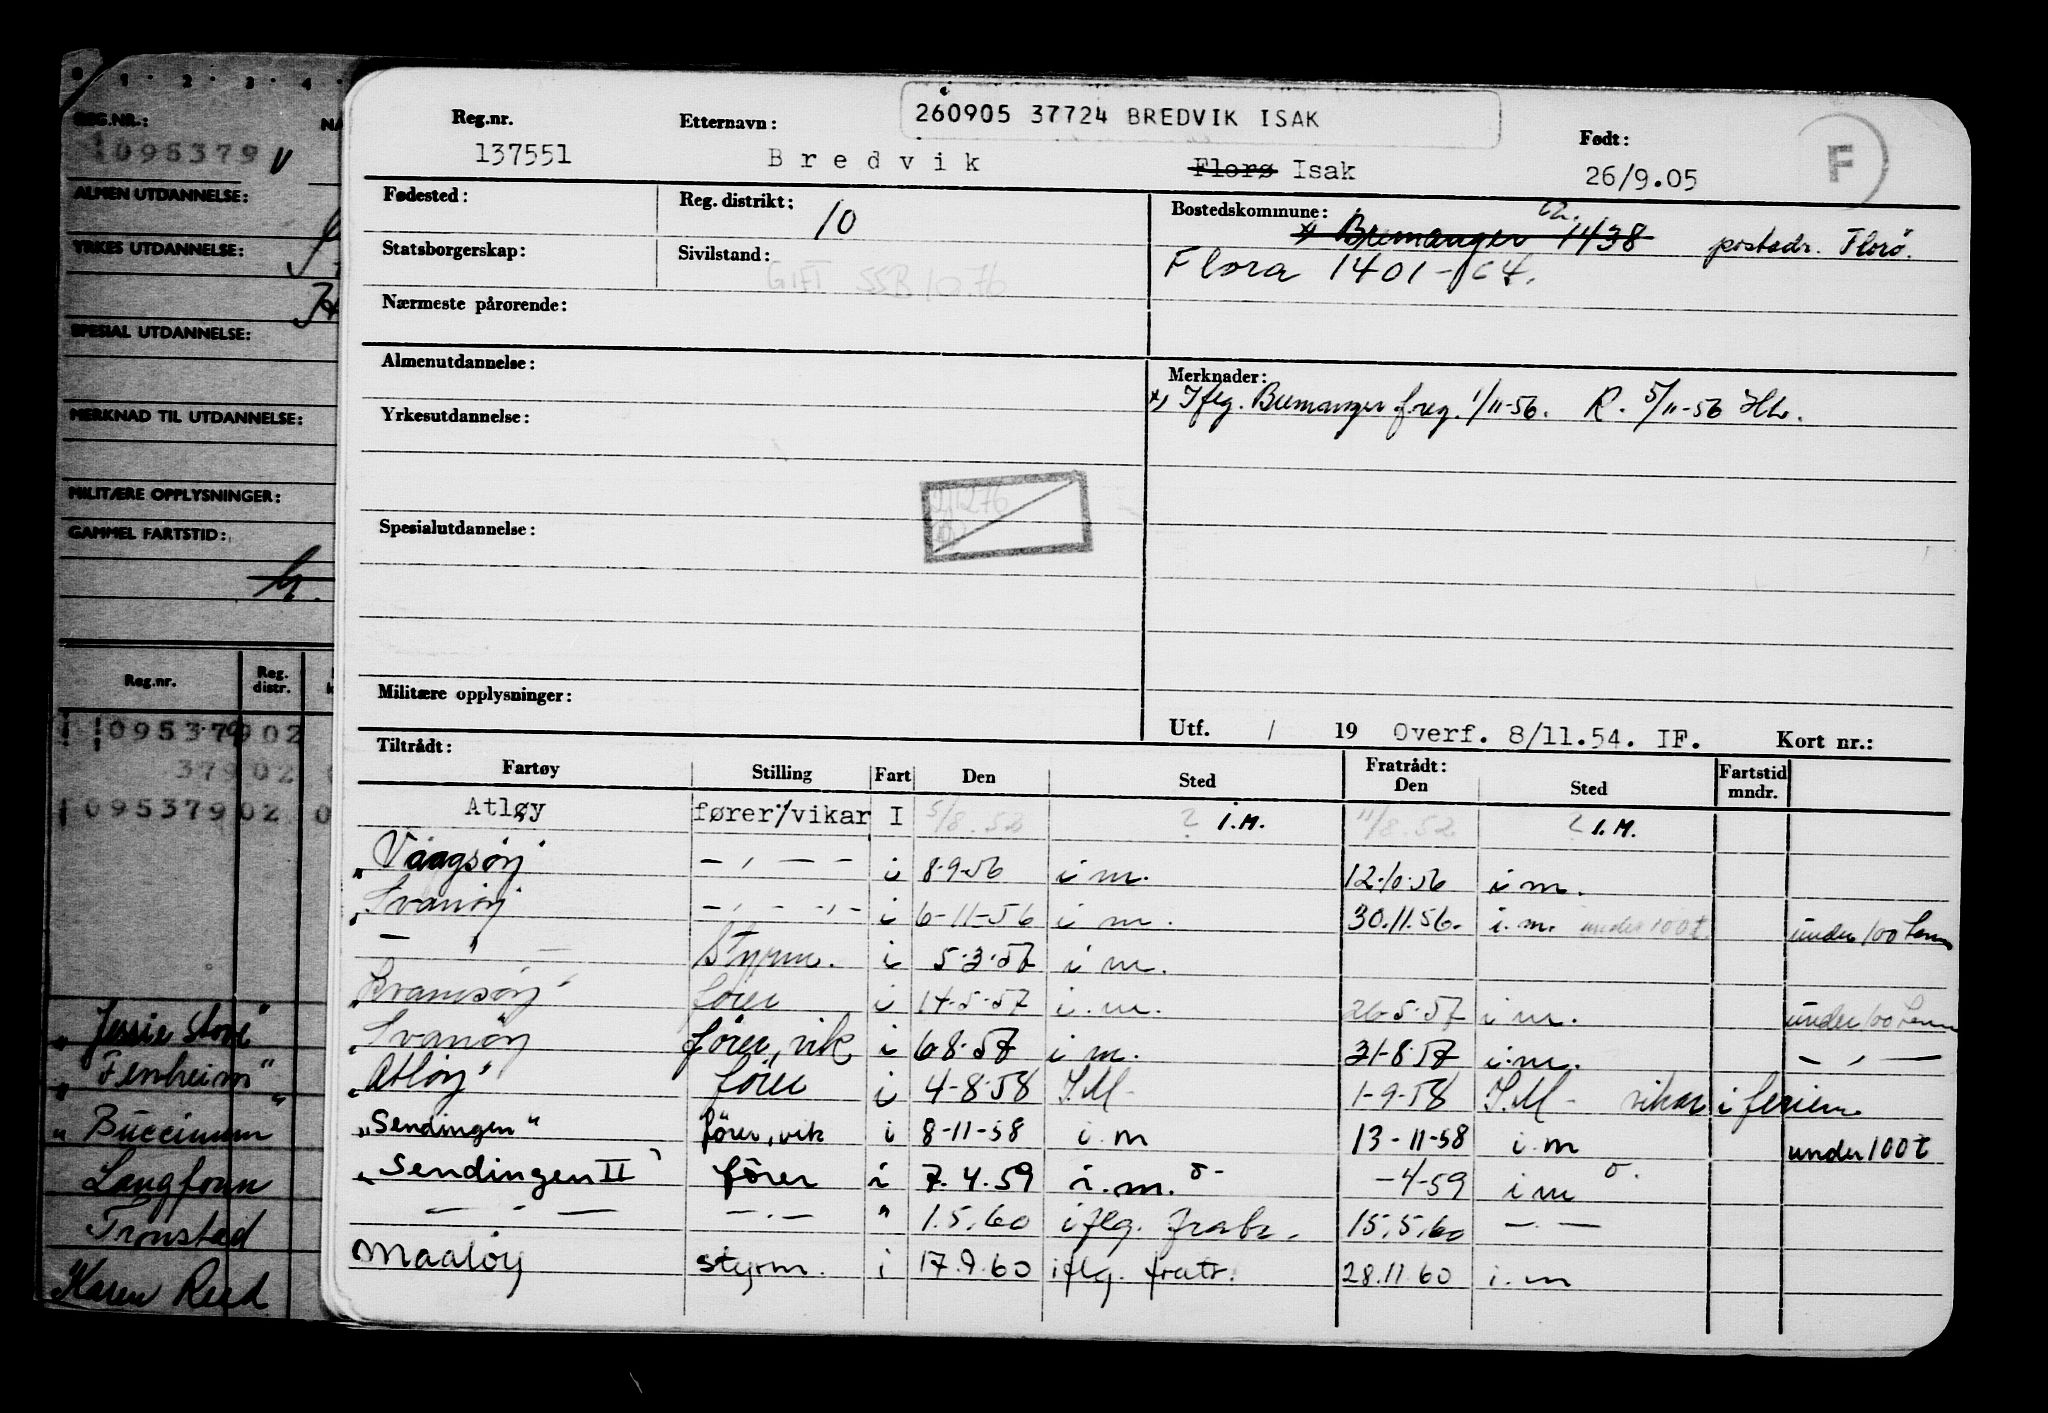 0 1 2 3 4
REG.NR.: NA
095379 V
ALMEN UTDANNELSE:
YRKES UTDANNELSE:
SPESIAL UTDANNELSE:
MERKNAD TIL UTDANNELSE:
MILITÆRE OPPLYSNINGER:
GAMMEL FARTSTID:
Reg.nr. Reg. distr.
109537902
37902
109537902 0
"Jessie Stove"
"Fenheim"
"Buccinum"
Langfonn
Tronstad
Karen Reed
260905 37724 BREDVIK ISAK
Reg.nr. Etternavn: Født:
137551 Bredvik Florø Isak 26/9.05 F
Fødested: Reg. distrikt: 10 Bostedskommune:
x) Bremanger 1438 postadr. Florø.
Statsborgerskap: Sivilstand: GIFT SSB Flora 1401-64.
Nærmeste pårørende:
Almenutdannelse: Merknader:
x) Iflg. Bremanger f.reg. 1/11-56. R. 5/11-56
Yrkesutdannelse:
Spesialutdannelse:
Militære opplysninger:
Utf. / 19 Overf. 8/11.54. IF. Kort nr.:
Tiltrådt: Fratrådt:
Fartøy Stilling Fart Den Sted Den Sted Fartstid mndr.
Atløy fører/vikar I 5/8.52 ? I.M. 11/8.52 ? I.M.
"Vaagsøy" — " — — i 8-9-56 i m. 12-10-56 i m.
"Svanøy — " — " — i 6-11-56 i m. 30.11.56. i.m. under 100 t. under 100 tonn
— " — Styrm. i 5-3-57 i m.
"Svanøy" fører i 14-5-57 i.m. 26-5-57 i m. under 100 tonn
"Svanøy fører, vik i 6-8-57 i m. 31-8-57 i.m. — " —
"Atløy" fører i 4-8-58 I.M- 1-9-58 I.M- vikar i ferien
"Sendingen" fører, vik i 8-11-58 i.m 13-11-58 i.m under 100 t
"Sendingen II" fører i 7.4.59 i.m. o- -4-59 i m o-
— " — — " — " 1.5.60 iflg. fratr. 15.5.60 — " —
Maaløy styrm. i 17.9.60 iflg. fratr. 28.11.60 i.m